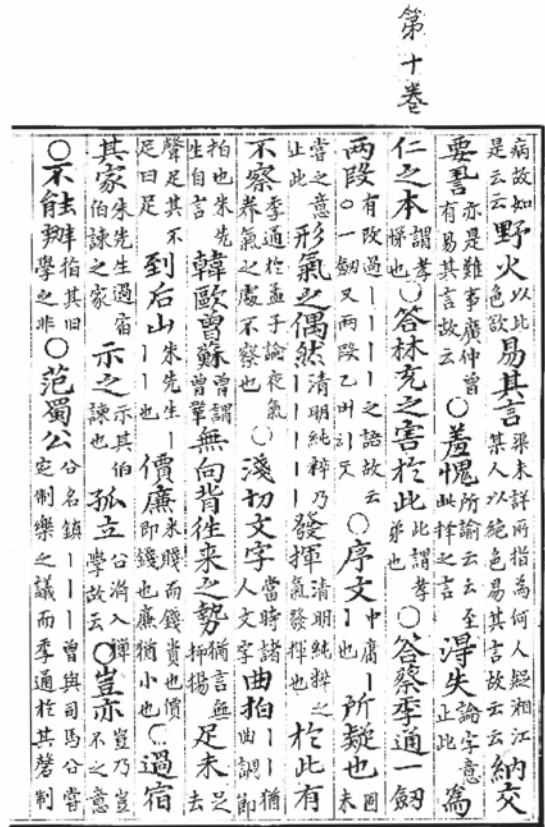 第十卷
病故如是云云野火以比色欲易其言渠未詳所指為何人疑湘江某人以絶色易其言故云云納交
要譽亦是難事廣仲曾有易其言故云○羞愧所諭云云至此擇之言淂失論字意止此為
仁之本謂孝悌也○答林充之害於此此謂孝弟也○答蔡季通一劔
两段有改過丨丨丨丨之語故云○一劔又两段乙버히天○序文中庸丨丨也所疑也固未
當之意止此形氣之偶然清明純粹乃丨丨丨丨丨發揮清明純粹之氣發揮也於此有
不察季通於孟子論夜氣养氣之處不察也○淺切文字當時諸人文字曲拍丨丨猶曲調節
拍也朱先生自言韓歐曽蘇曽謂曽鞏無向背徃来之勢猶言無抑揚足未足去
聲足其不足曰足到后山朱先生丨丨丨也價廉米賤而錢貴也價即錢也廉猶小也○過宿
其家朱先生過宿伯諫之家示之示其伯諫也孤立公濟入禪學故云○豈亦豈乃豈不之意
○不能辦指其旧學之非○范蜀公公名鎮丨丨丨曽與司馬公嘗定制樂之議而季通於其磬制